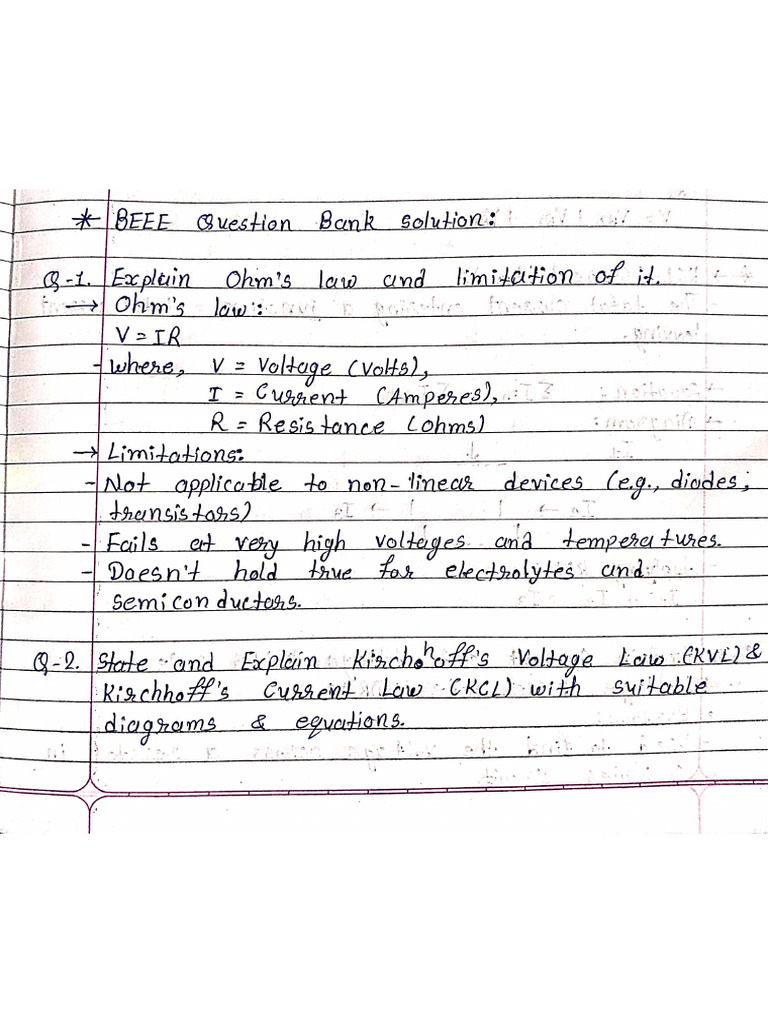 * BEEE Question Bank solution:
Q-1. Explain Ohm's law and limitation of it.
→ Ohm's law:
V = IR
- where, V = Voltage (Volts),
I = Current (Amperes),
R = Resistance (ohms)
→ Limitations:
- Not applicable to non-linear devices (e.g., diodes,
transistors)
- Fails at very high voltages and temperatures.
- Doesn't hold true for electrolytes and
semiconductors.
Q-2. State and Explain Kirchohoff's Voltage Law (KVL) &
Kirchhoff's Current Law (KCL) with suitable
diagrams & equations.